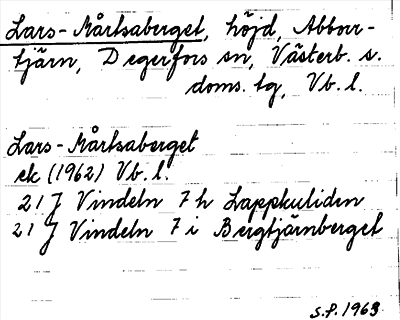 Lars-Mårtsaberget, höjd, Abborr-
tjärn, Degerfors sn, Västerb. s.
doms. tg, Vb. l.
Lars-Mårtsaberget
ek (1962) Vb. l.
21 J Vindeln 7 h Lappkuliden
21 J Vindeln 7 i Bergtjärnberget
S.P. 1963